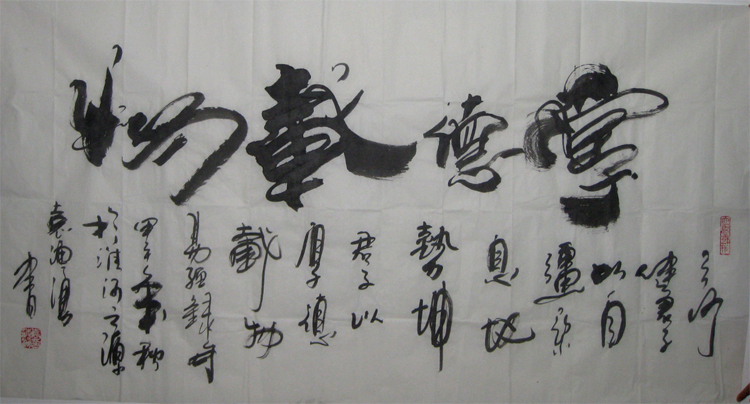 厚德載物
天行
健君子
以自
彊不
息地
勢坤
君子以
厚德
載物
易經錄句
甲午金秋
於淮河之源